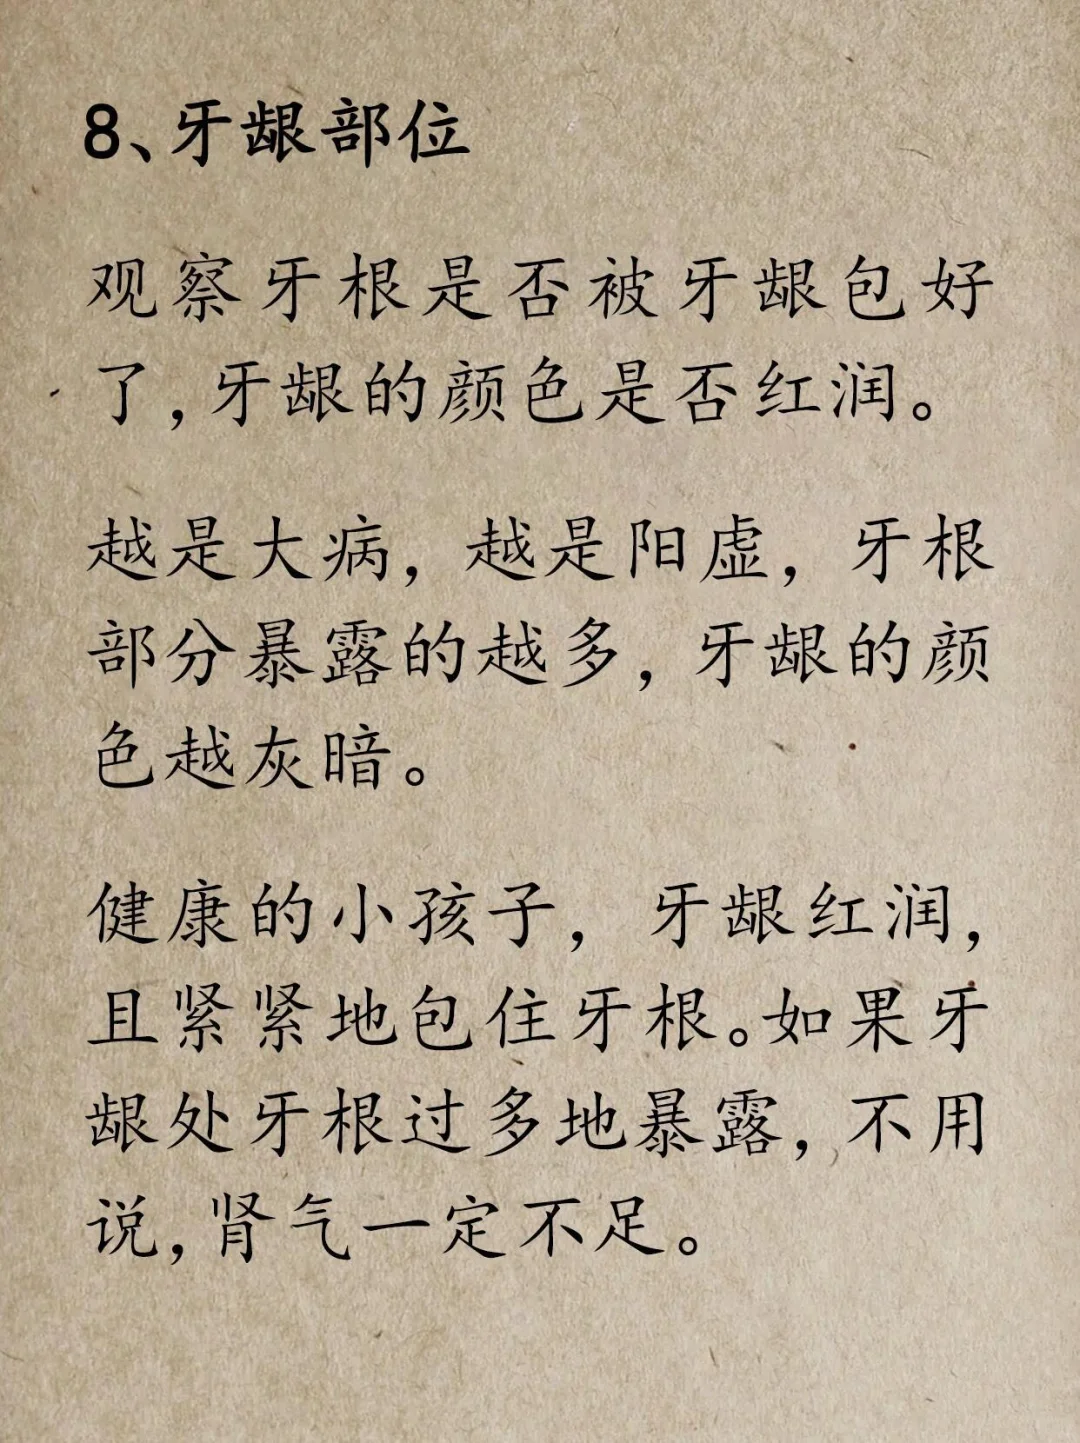 8、牙龈部位
观察牙根是否被牙龈包好
了,牙龈的颜色是否红润。
越是大病,越是阳虚,牙根
部分暴露的越多,牙龈的颜
色越灰暗。
健康的小孩子,牙龈红润,
且紧紧地包住牙根。如果牙
龈处牙根过多地暴露,不用
说,肾气一定不足。